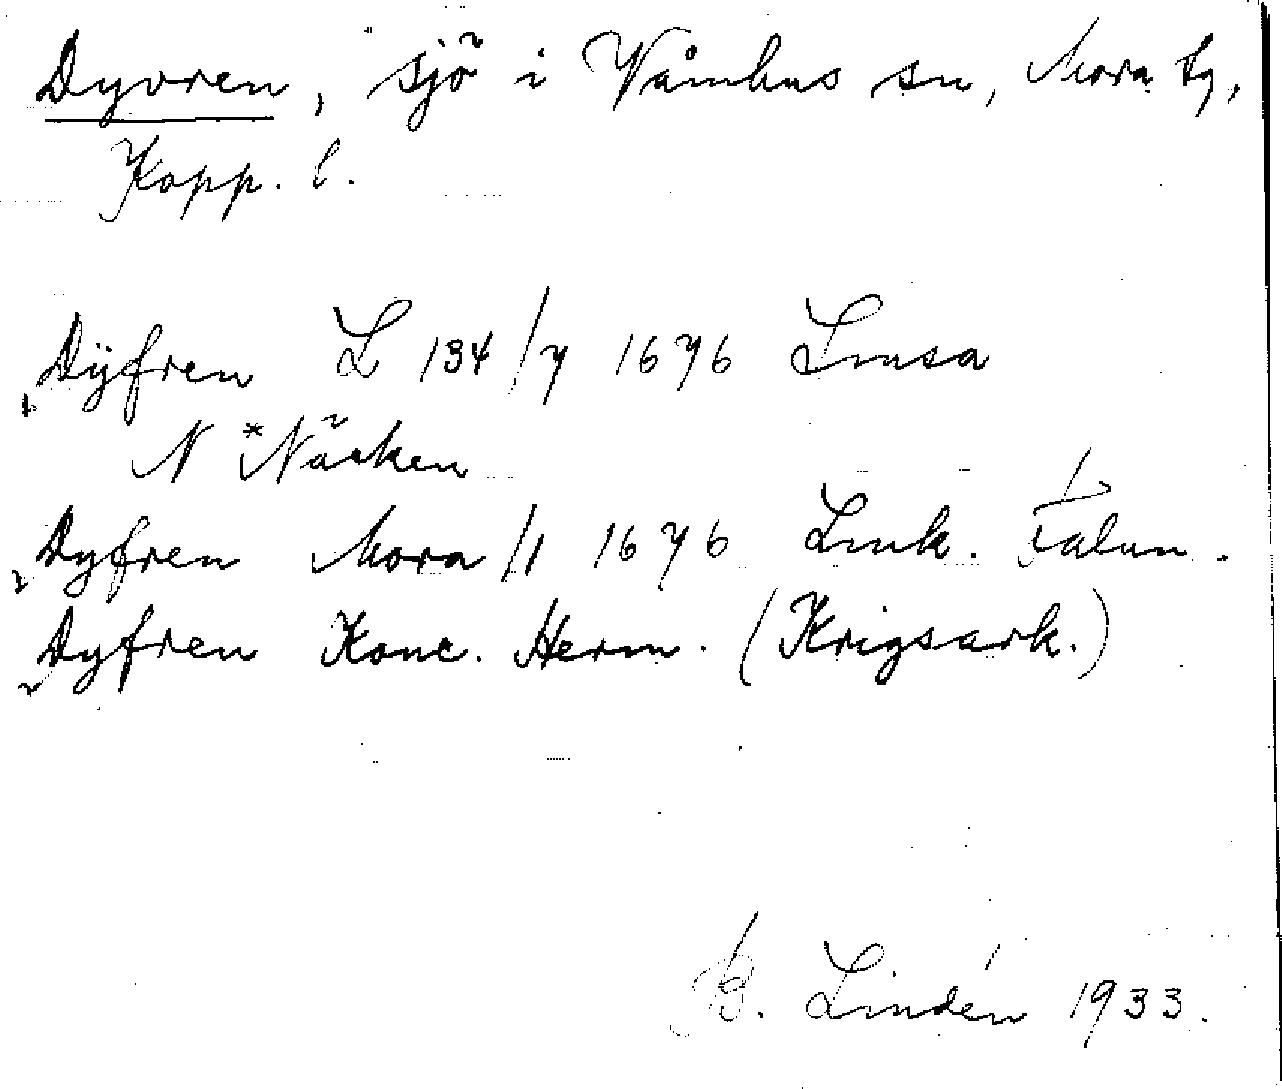 Dyvren, sjö i Våmhus sn, Mora tg,
Kopp. l.
Dÿfren L 134/7 1676 Lmsa
N *Näcken
Dyfren Mora/1 1676 Lmk. Falun.
Dyfren Konc. Herm. (Krigsark.)
B. Lindén 1933.